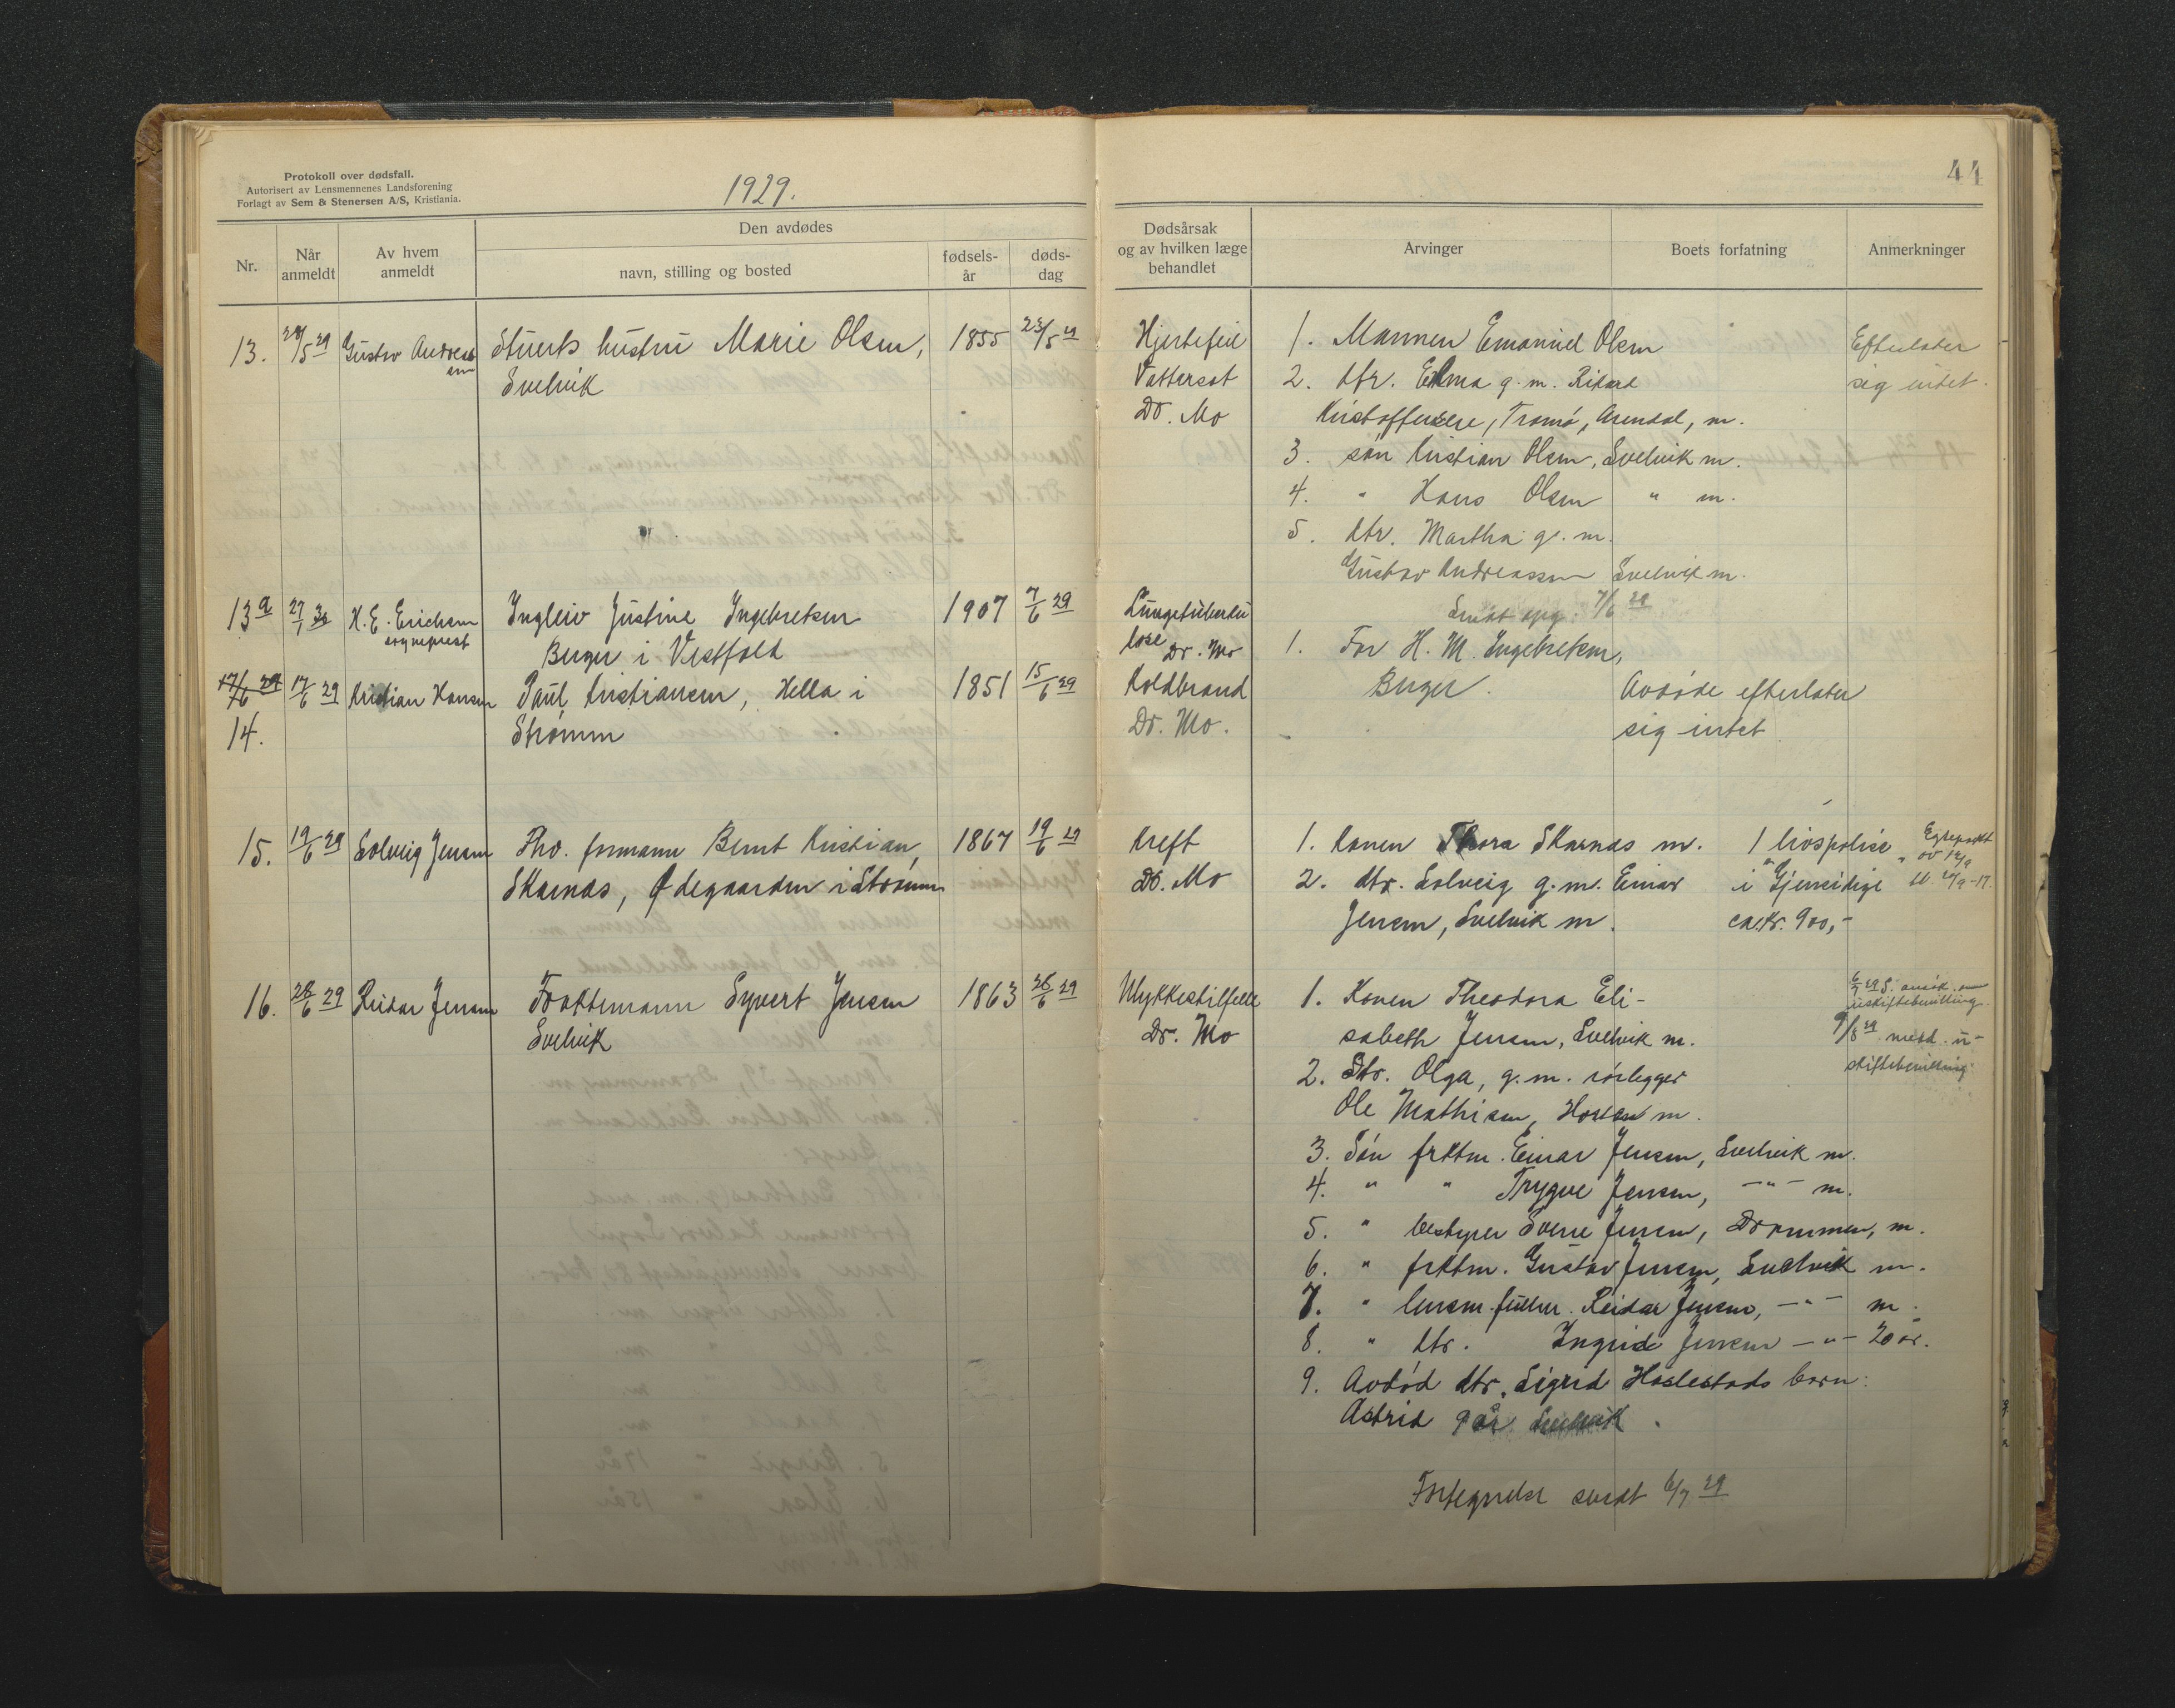 Protokoll over dødsfall.
Autorisert av Lensmennenes Landsforening
Forlagt av Sem & Stenersen A/S, Kristiania.
1929.
44
Nr.
Når anmeldt
Av hvem anmeldt
Den avdødes
navn, stilling og bosted
fødsels-år
døds-dag
Dødsårsak og av hvilken læge behandlet
Arvinger
Boets forfatning
Anmerkninger
13. 28/5 29 Gustav Andreassen
Stuerts hustru Marie Olsen, 1855 23/5 29
Svelvik
Hjertefeil
Vattersot
Dr. Mo
1. Mannen Emanuel Olsen
2. dtr. Elma g. m. Rikard
Kristoffersen, Tromö, Arendal, m.
3. sön Kristian Olsen, Svelvik m.
4. " Hans Olsen " m.
5. dtr. Martha g. m.
Gustav Andreassen Svelvik m.
Sendt opg. 7/6 29
Efterlater
sig intet.
13a 27/1 30 H. E. Erichsen
sogneprest
Ingleiv Justine Ingebretsen 1907 7/6 29
Berger i Vestfold
Lungetuberku
lose Dr. Mo
1. Far H. M. Ingebretsen,
Berger.
17/6 29 17/6 29 Kristian Hansen
14.
Paul Kristiansen, Hella i 1851 15/6 29
Strömm
Koldbrand
Dr. Mo.
Avdöde efterlater
sig intet
15. 19/6 29 Solveig Jensen
Fhv. formann Bernt Kristian, 1867 19/6 29
Skarnas, Ødegaarden i Strömm
Kreft
Dr. Mo
1. Konen Thora Skarnas m.
2. dtr. Solveig g. m. Einar
Jensen, Svelvik m.
1 livspolise
i "Gjensidige"
ca. kr. 900,-
16. 28/6 29 Reidar Jensen
Fraktemann Syvert Jensen 1863 26/6 29
Svelvik
Ulykkestilfelle
Dr. Mo
1. Konen Theodora Eli-
sabeth Jensen, Svelvik m.
2. Dtr. Olga, g. m. rörlegger
Ole Mathisen, Horten m.
3. Sön frktm. Einar Jensen, Svelvik m.
4. " " Trygve Jensen, -"- m.
5. " bestyrer Sverre Jensen, Drammen, m.
6. " frktm. Gustav Jensen, Svelvik m.
7. " lensm. fullm. Reidar Jensen, -"- m.
8. " dtr. Ingrid Jensen -"- 20 år.
9. Avdöd dtr. Sigrid Haslestads barn:
Astrid 9 år Svelvik.
ansök. om
uskiftebevilling.
9/8 29 medd. u-
skiftebevilling
Fortegnelse sendt 6/7 29